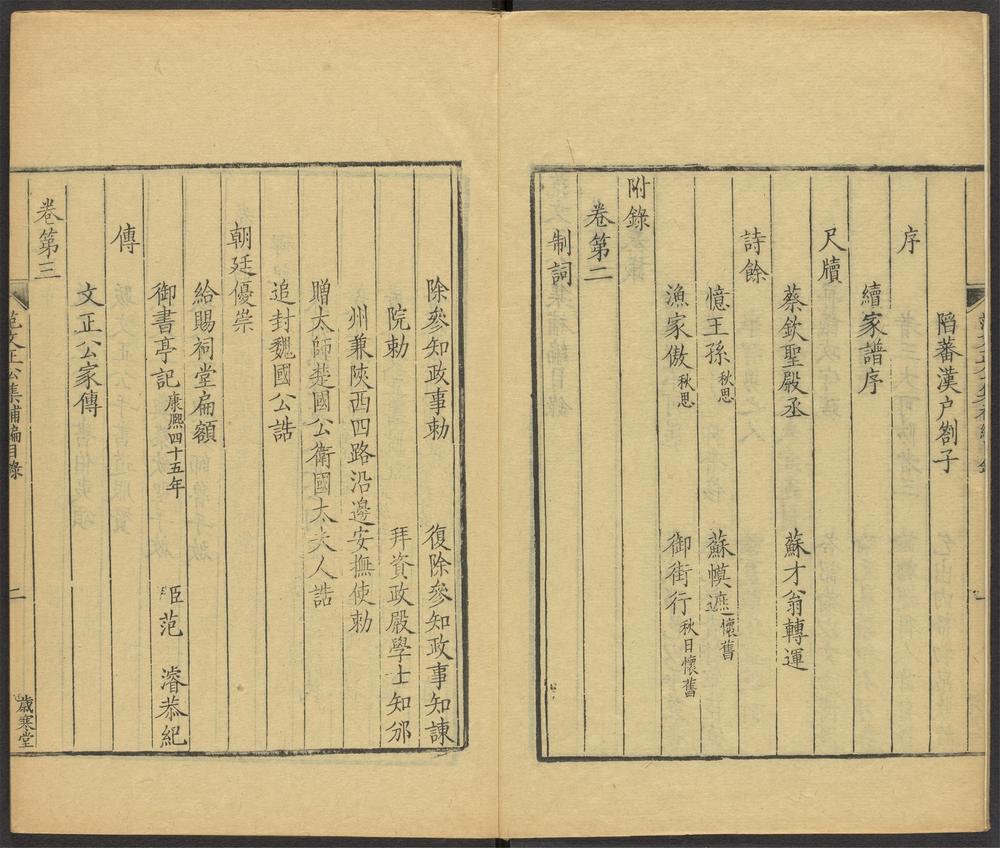 陷蕃漢户劄子
序
續家譜序
尺牘
蔡欽聖殿丞　蘇才翁轉運
詩餘
憶王孫秋思　蘇幙遮懷舊
漁家傲秋思　御街行秋日懷舊
附錄
卷第二
制詞
除參知政事勅　復除參知政事知諌
院勅　拜資政殿學士知邠
州兼陜西四路沿邊安撫使勅
贈太師楚國公衛國太夫人誥
追封魏國公誥
朝廷優崇
給賜祠堂扁額
御書亭記康熙四十五年　臣范濬恭紀
傳
文正公家傳
卷第三
范文正公集補編目錄　二　歲寒堂